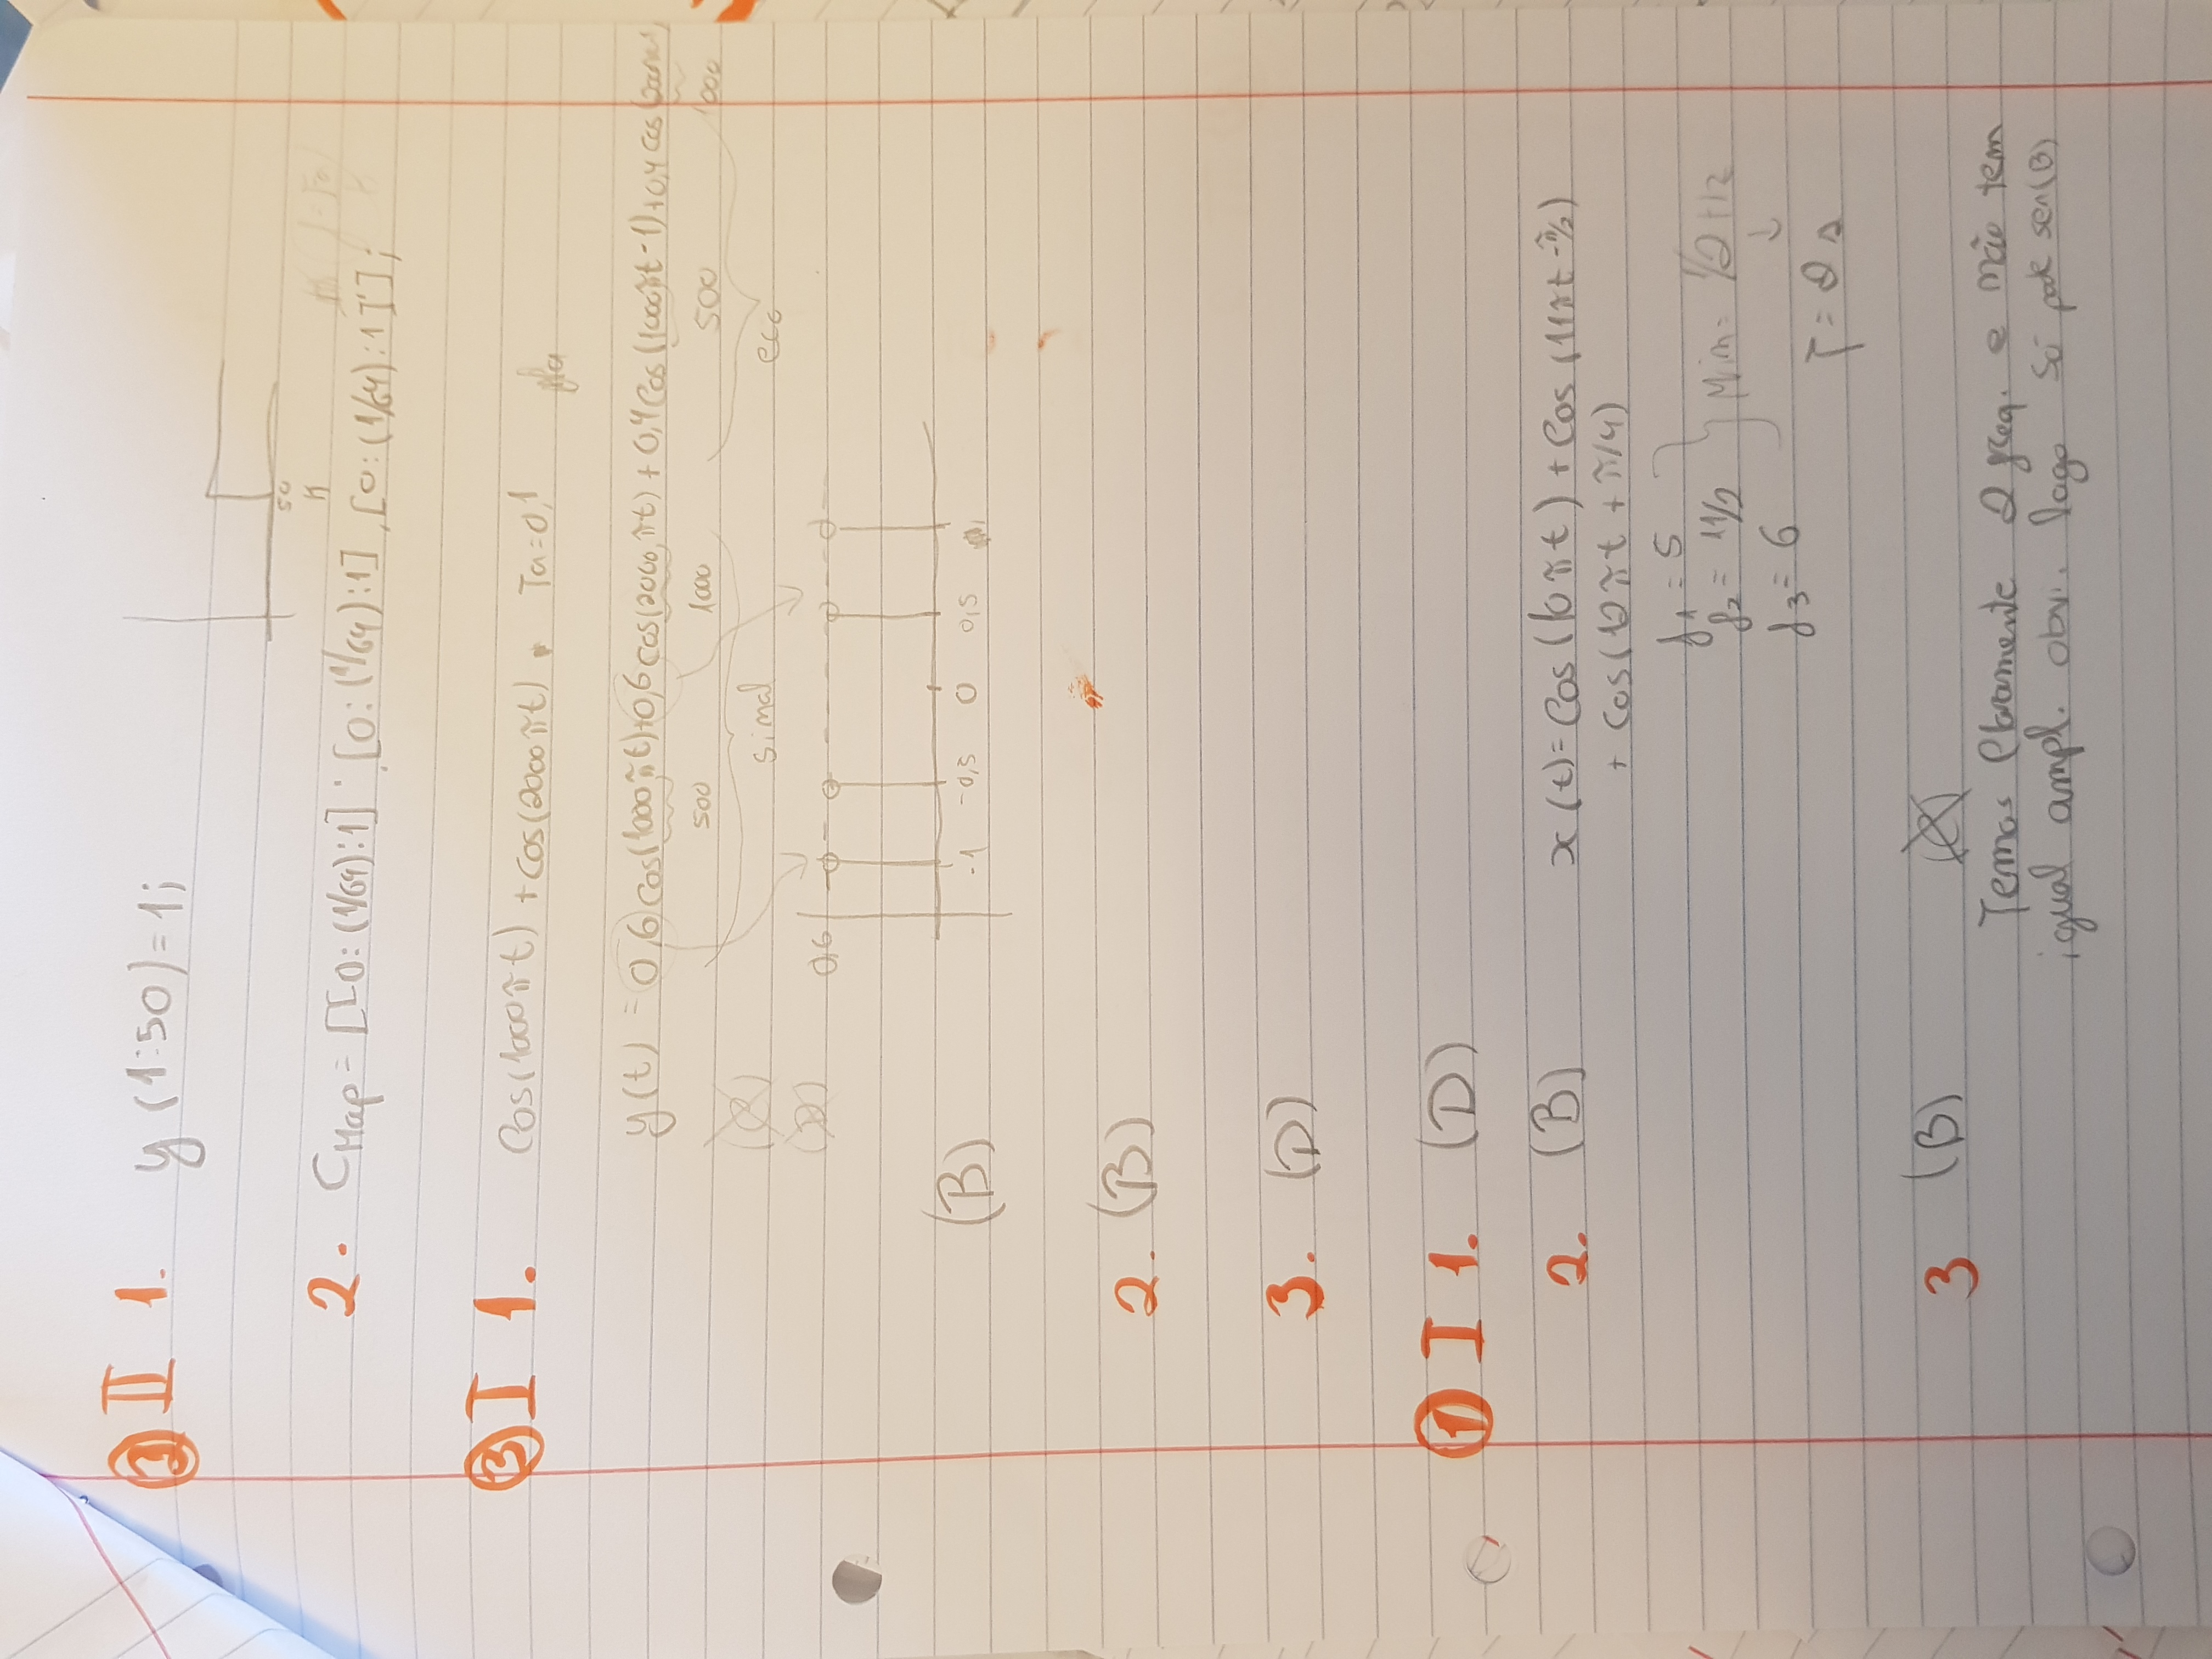 ③ II 1. y(1:50) = 1;
50
n
2. CMap = [[0:(1/64):1]; [0:(1/64):1], [0:(1/64):1]'];
③ I 1. Cos(1000πt) + Cos(2000πt) Ta=0,1
y(t) = 0,6 Cos(1000πt)+0,6 cos(2000πt) + 0,4 Cos(1000πt-1)+0,4 cos(
500 1000 500 1000
sinal eco
0,6
-1 -0,5 0 0,5
(B)
2. (B)
3. (D)
① I 1. (D)
2. (B) x(t) = Cos(10πt) + Cos(11πt-π/2)
+ cos(12πt + π/4)
f1 = 5
f2 = 11/2 } Min = 1/2 Hz
f3 = 6 ↓
T = 2 s
3 (B)
Temos claramente 2 freq. e não tem
igual ampl. obvi. logo só pode ser (B)